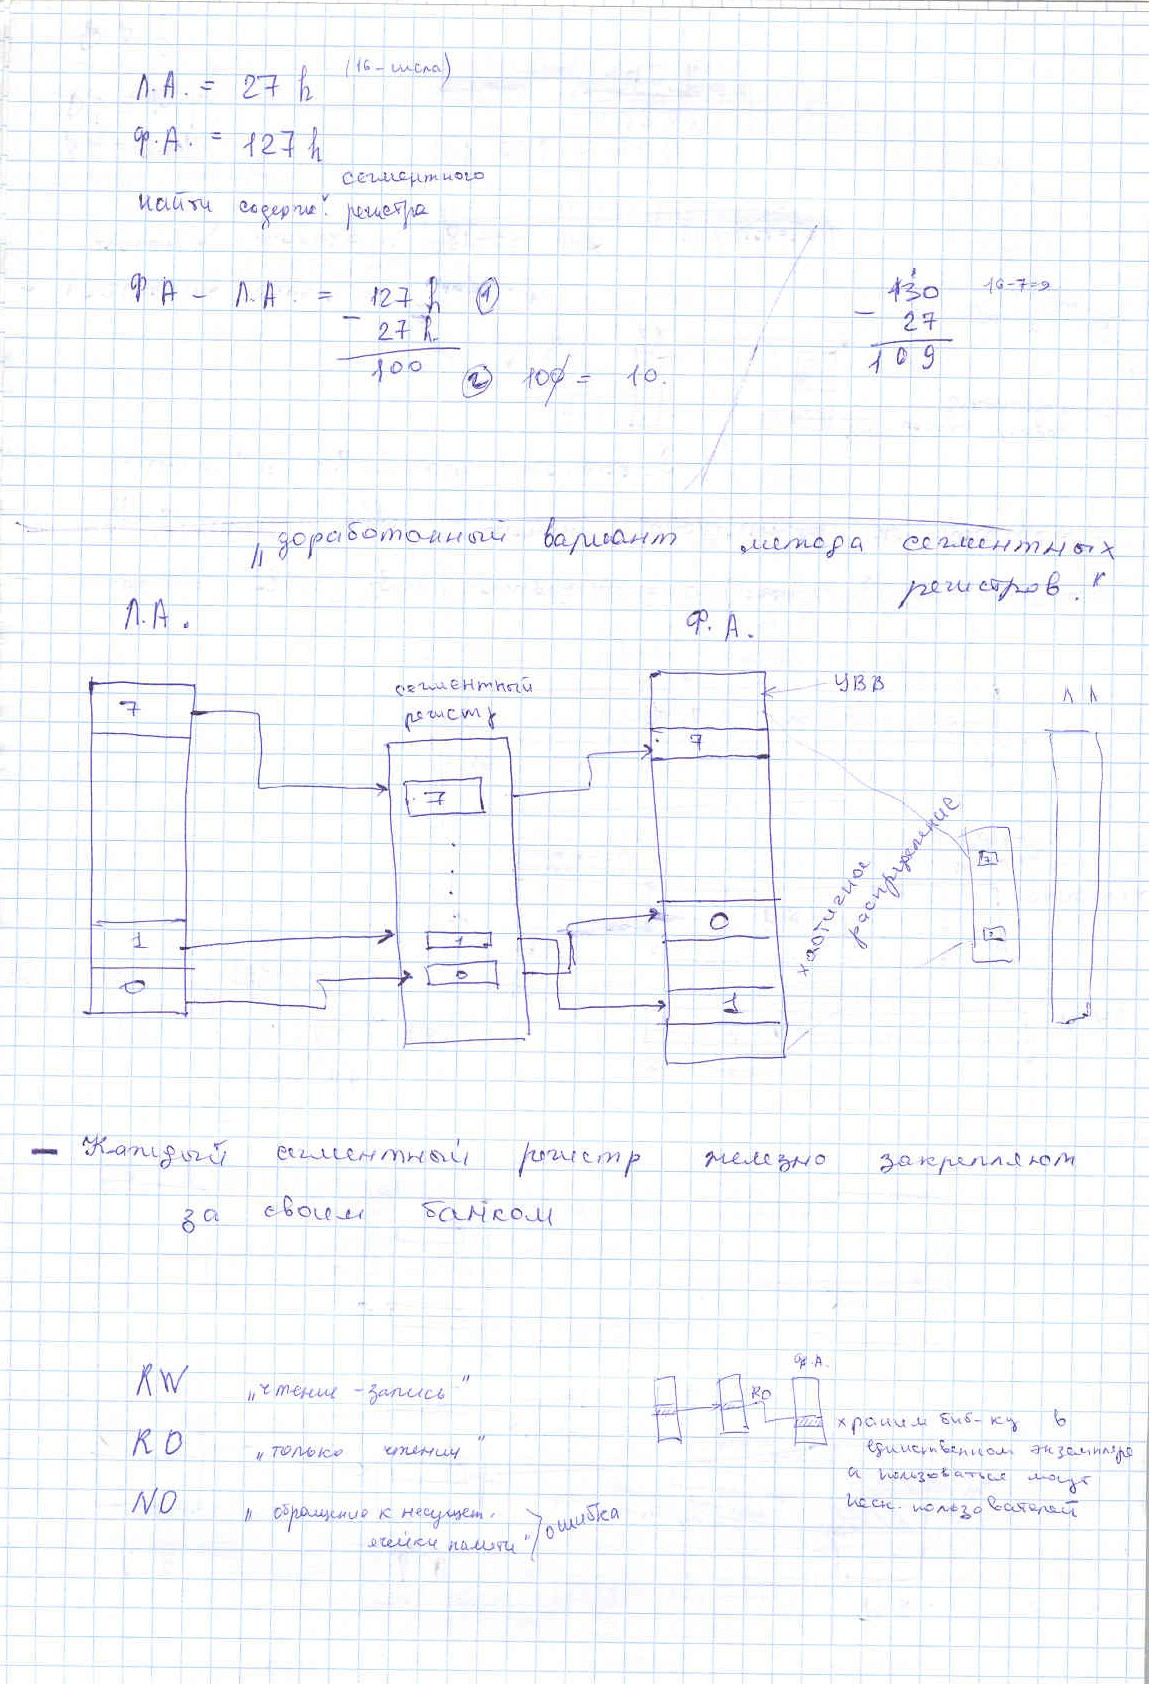 Л.А. = 27 h (16-числа)
Ф.А. = 127 h
сегментного
найти содерж. регистра
Ф.А - Л.А. = 127 h ①
- 27 h
100
② 100 = 10.
130 16-7=9
- 27
109
„доработанный вариант метода сегментных
регистров."
Л.А.
Ф.А.
сегментный
регистр
УВВ
ЛА
7
7
7
1
0
1
0
0
1
хаотичное
распределение
- Каждый сегментный регистр железно закрепляют
за своим банком
RW „чтение-запись"
RO „только чтение"
NO „обращение к несущест.
ячейки памяти" } ошибка
Ф.А.
RO
храним биб-ку в
единственном экземпляре
а пользоваться могут
неск. пользователей